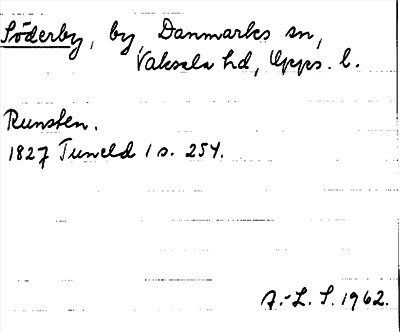 Söderby, by Danmarks sn,
Vaksala hd, Upps. l.
Runsten.
1827 Tuneld 1 s. 254.
A.-L. S. 1962.